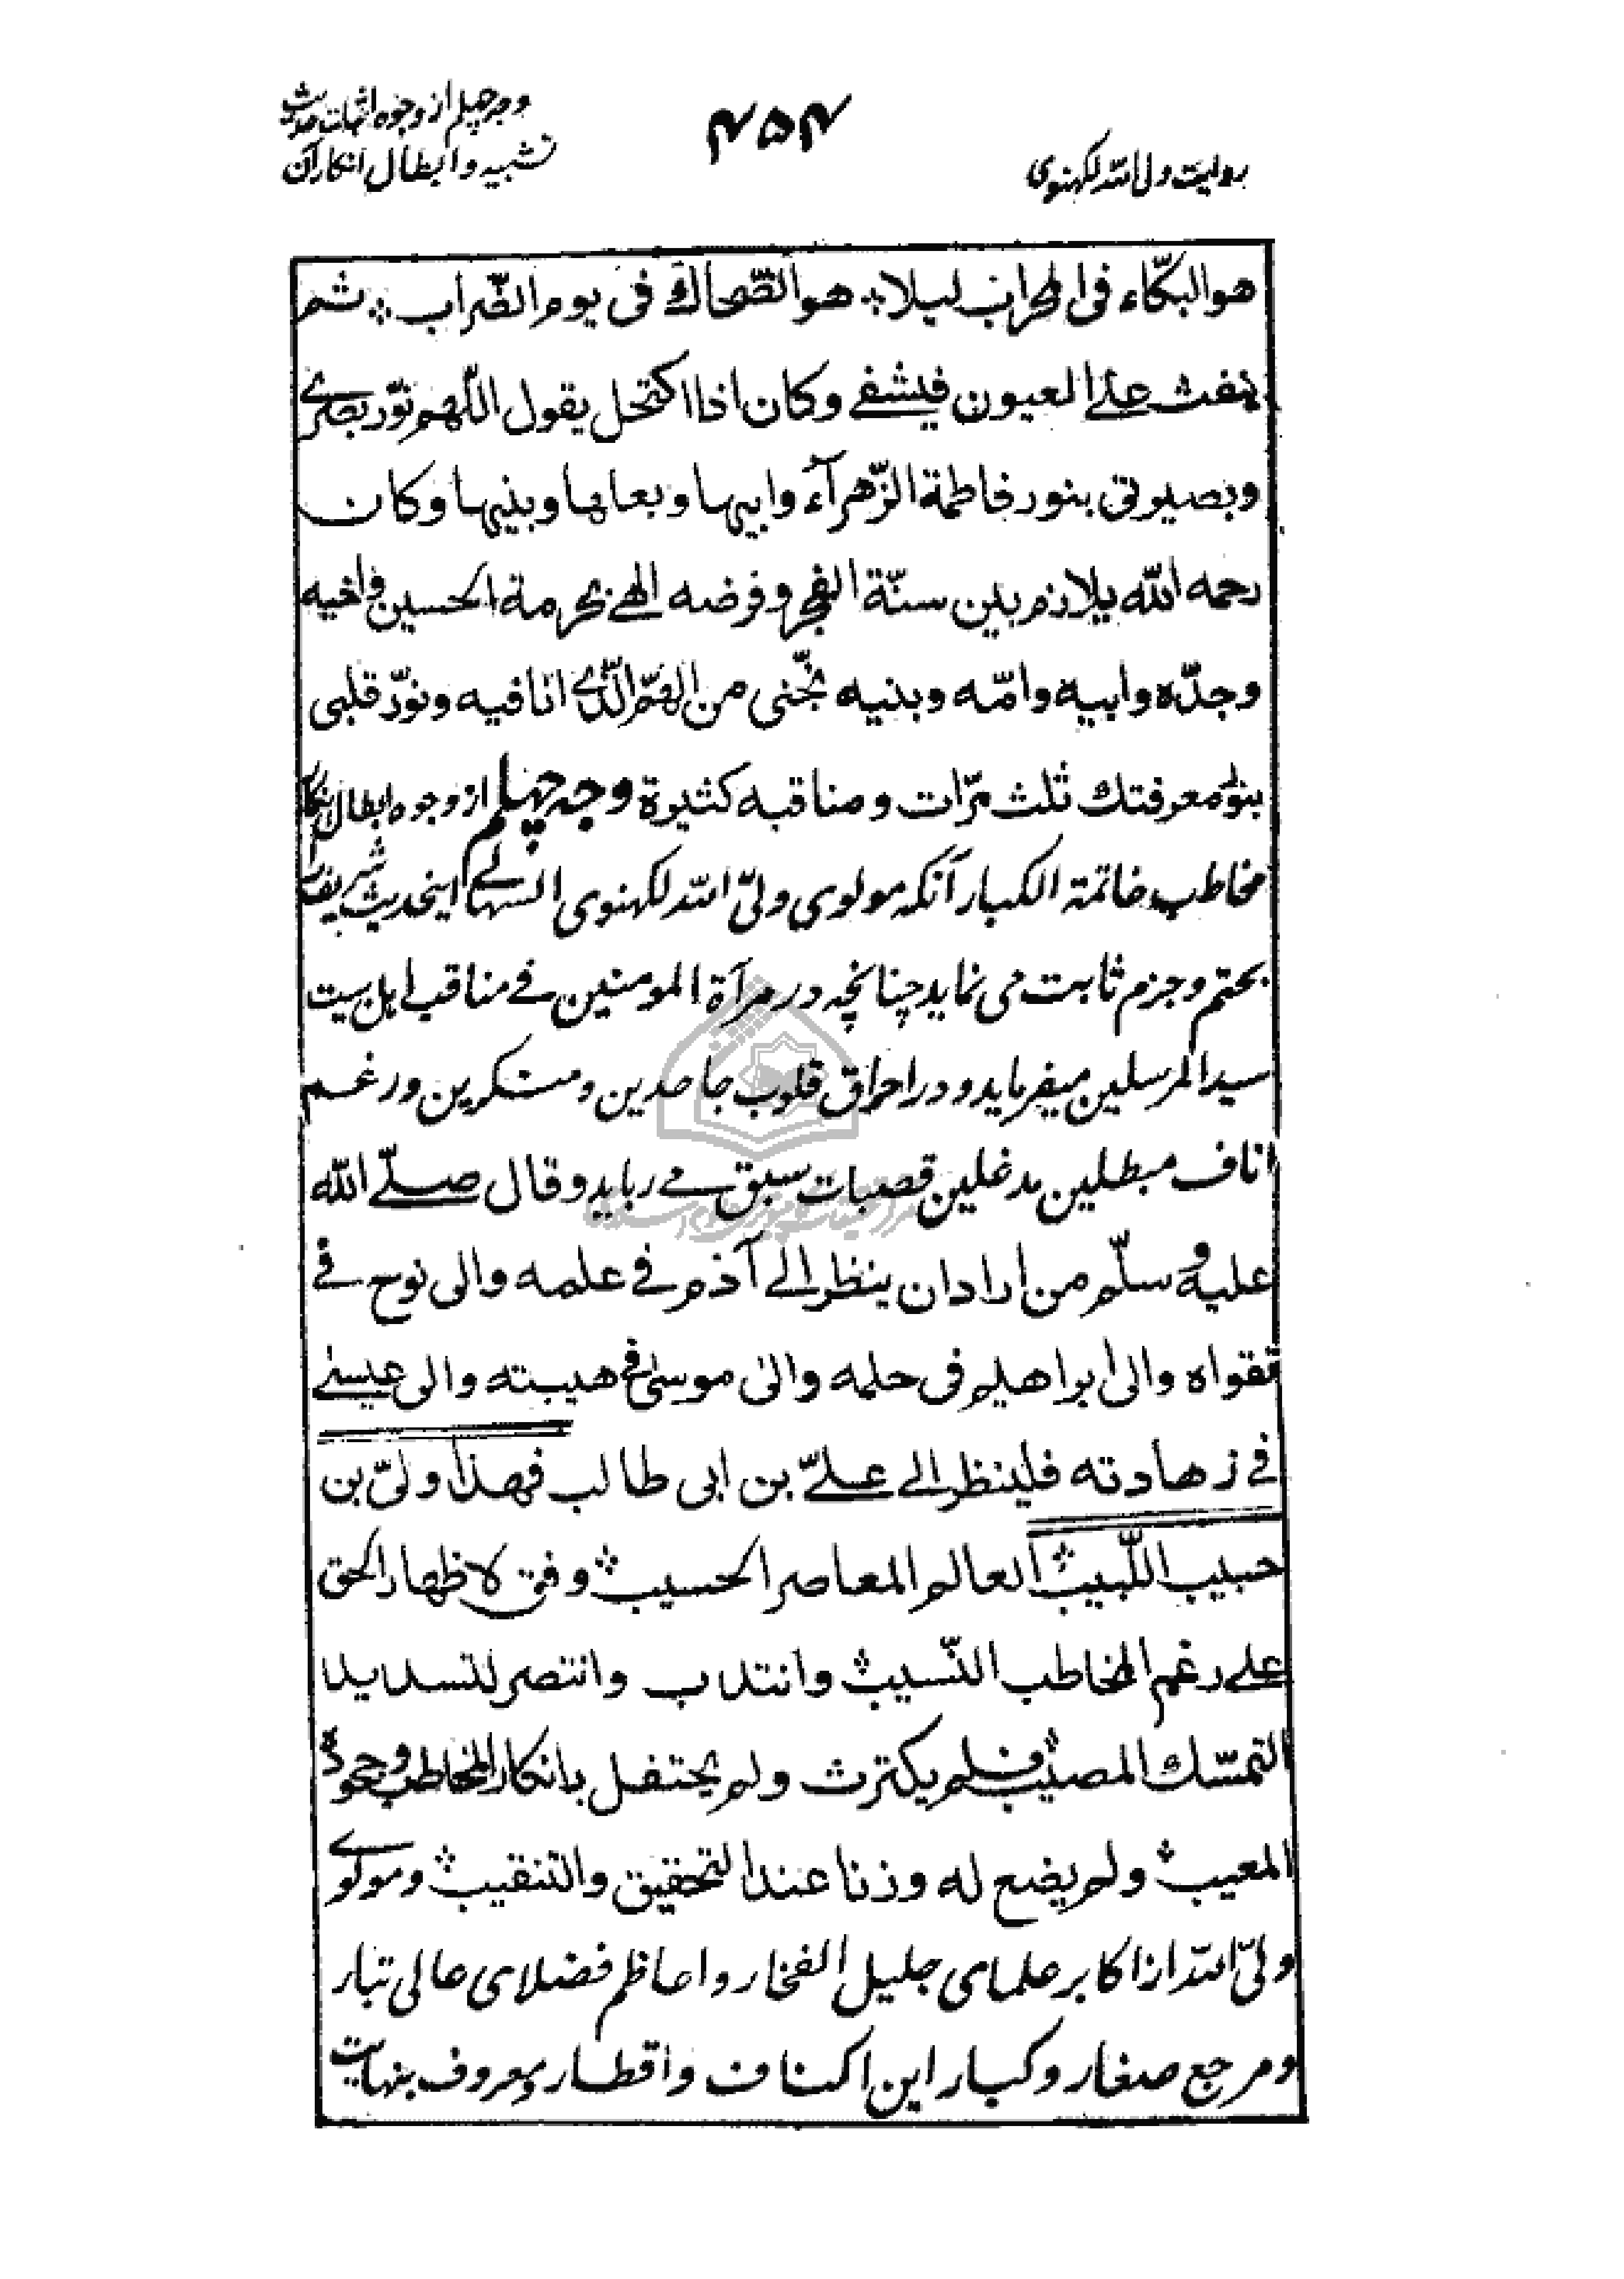 روایت ولی الله لکهنوی
۴۵۴
وجه چهلم از وجوه اثبات حدیث
تشبیه و ابطال انکار آن
هو البکّاء فی المحراب لیلا ؞ هو الضّحّاك فی یوم الضّراب ؞ ثم
ینفث علی العیون فیشفی و کان اذا اکتحل یقول اللّهم نوّر بصری
و بصیرتی بنور فاطمة الزّهرآء و ابیها و بعلها و بنیها و کان
رحمه اللّه یلازم بین سنّة الفجر و فرضه الهی بحرمة الحسین و اخیه
و جدّه و ابیه و امّه و بنیه نجّنی من الغمّ الّذی انا فیه و نوّر قلبی
بنور معرفتك ثلث مرّات و مناقبه کثیرة وجه چهلم از وجوه ابطال انکار
مخاطب خاتمة الکبار آنکه مولوی ولیّ الله لکهنوی السهالی اینحدیث شریف را
بحتم و جزم ثابت می نماید چنانچه در مرآة المومنین فی مناقب اهل بیت
سید المرسلین میفرماید و در احراق قلوب جاحدین و منکرین و رغم
اناف مبطلین مدغلین قصبات سبق می رباید و قال صلّی اللّه
علیه و سلّم من اراد ان ینظر الی آدم فی علمه والی نوح فی
تقواه والی ابراهیم فی حلمه والی موسی فی هیبته والی عیسی
فی زهادته فلینظر الی علیّ بن ابی طالب فهذا ولیّ بن
حبیب اللّبیب ؞ العالم المعاصر الحسیب ؞ وفق لاظهار الحق
علی رغم المخاطب النّسیب ؞ و انتدب و انتصر لتسدید
التمسّك المصیب ؞ فلم یکترث و لم یحتفل بانکار المخاطب و جحوده
المعیب ؞ و لم یضع له وزنا عند التحقیق و التنقیب ؞ و مولوی
ولیّ الله از اکابر علمای جلیل الفخار و اعاظم فضلای عالی تبار
و مرجع صغار و کبار این اکناف و اقطار و معروف بنهایت